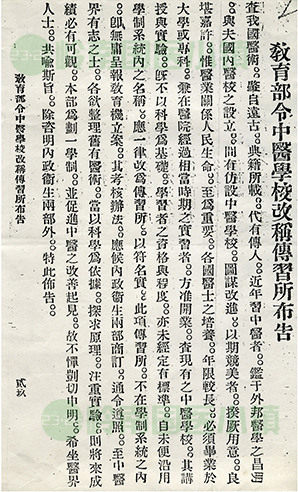 教育部令中醫學校改稱傳習所布告
查我國醫術。發自遠古。典籍所載。代有傳人。近年習中醫者。鑑于外邦醫學之昌明
。與夫國內醫校之設立。間有仿設中醫學校。圖謀改進。以期競美者。揆厥用意。良
堪嘉許。惟醫業關係人民生命。至爲重要。各國醫士之培養。年限較長。必須畢業於
大學或專科。兼在醫院經過相當時期之實習者。方准開業。查現有之中醫學校。其講
授與實驗。旣不以科學爲基礎。學習者之資格與程度。亦未經定有標準。自未便沿用
學制系統內之名稱。應一律改爲傳習所。以符名實。此項傳習所。不在學制系統之內
。卽無庸呈報敎育機立案。其考核辦法。應候內政衛生兩部商訂。通令遵照。至中醫
界有志之士。各欲整理舊有醫術。當以科學爲依據。探求原理。注重實驗。則將來成
績必有可觀。本部爲劃一學制。並促進中醫之改善起見。故不憚剴切申明。希坐醫界
人士。共喩斯旨。除咨明內政衛生兩部外。特此佈告。
敎育部令中醫學校改稱傳習所布告
貳玖